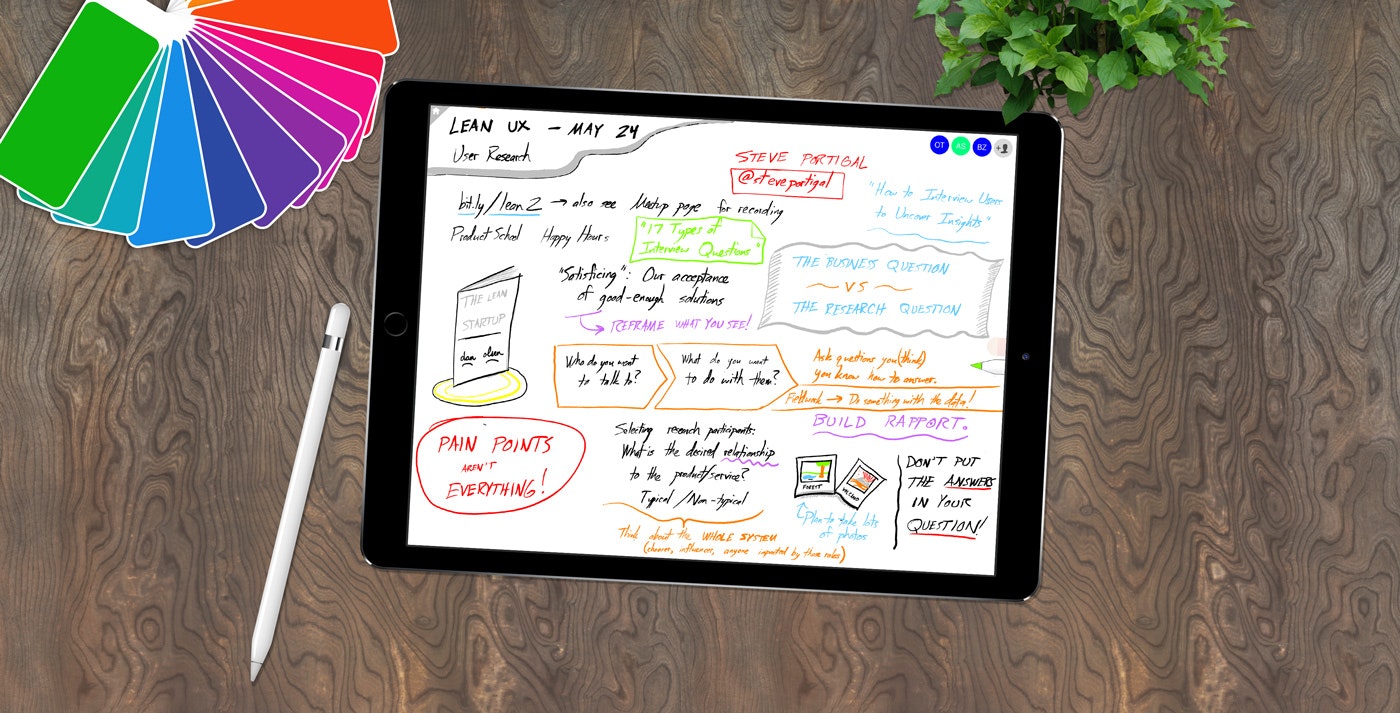 LEAN UX – MAY 24
User Research
OT AS BZ
STEVE PORTIGAL
@steveportigal
"How to Interview Users
to Uncover Insights"
bit.ly/lean2 → also see Meetup page for recording
Product School Happy Hours
"17 Types of
Interview Questions"
THE BUSINESS QUESTION
VS
THE RESEARCH QUESTION
"Satisficing": Our acceptance
of good-enough solutions
REFRAME WHAT YOU SEE!
THE LEAN
STARTUP
dan olsen
Who do you want
to talk to?
What do you want
to do with them?
Ask questions you (think)
you know how to answer.
Fieldwork → Do something with the data!
BUILD RAPPORT.
PAIN POINTS
AREN'T
EVERYTHING!
Selecting research participants:
What is the desired relationship
to the product/service?
Typical / Non-typical
Think about the WHOLE SYSTEM
(chooser, influencer, anyone impacted by those roles)
FOREST
VOLCANO
Plan to take lots
of photos
DON'T PUT
THE ANSWERS
IN YOUR
QUESTION!